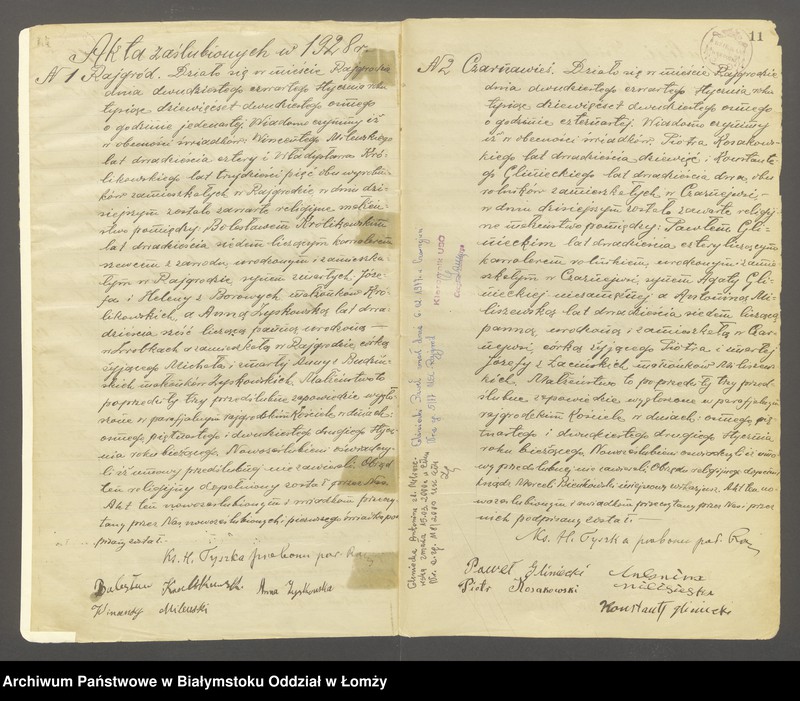 Akta zaślubionych w 1928 r.
№ 1 Rajgród. Działo się w mieście Rajgrodzie
dnia dwudziestego czwartego stycznia roku
tysiąc dziewięćset dwudziestego ósmego
o godzinie jedenastej. Wiadomo czynimy iż
w obecności świadków: Wincentego Milewskiego
lat dwadzieścia cztery i Władysława Kró-
likowskiego lat trzydzieści pięć obu wyrobni-
ków zamieszkałych w Rajgrodzie, w dniu dzi-
siejszym zostało zawarte religijne małżeń-
stwo pomiędzy Bolesławem Królikowskim
lat dwadzieścia siedem liczącym kawalerem
szewcem z zawodu, urodzonym i zamieszka-
łym w Rajgrodzie, synem zmarłych Józe-
fa i Heleny z Borowych małżonków Kró-
likowskich, a Anną Zyskowską lat dwa-
dzieścia sześć liczącą panną urodzoną
zamieszkałą w Rajgrodzie, córką
żyjącego Michała i zmarłej Anny z
małżonków Zyskowskich. Małżeństwo to
poprzedziły trzy przedślubne zapowiedzie wygło-
szone w parafjalnym rajgrodzkim Kościele w dniach:
ósmego, piętnastego i dwudziestego drugiego stycz-
nia roku bieżącego. Nowozaślubieni oświadczy-
li iż umowy przedślubnej nie zawierali. Obrzęd
ten religijny dopełniony został przez Nas.
Akt ten nowozaślubionym i świadkom przeczy-
tany przez Nas, nowozaślubionych, pierwszego świadka pod-
pisany został.
Ks. H. Tyszka proboszcz par. Raj
Bolesław Królikowski Anna Zyskowska
Wincenty Milewski
11
№ 2 Czarnawieś. Działo się w mieście Rajgrodzie
dnia dwudziestego czwartego stycznia roku
tysiąc dziewięćset dwudziestego ósmego
o godzinie czternastej. Wiadomo czynimy
iż w obecności świadków: Piotra Kosakow-
skiego lat dwadzieścia dziewięć i Konstante-
go Glinieckiego lat dwadzieścia dwa obu
rolników zamieszkałych w Czarnejwsi,
w dniu dzisiejszym zostało zawarte religij-
ne małżeństwo pomiędzy: Pawłem Gli-
nieckim lat dwadzieścia cztery liczącym
kawalerem rolnikiem, urodzonym i zamie-
szkałym w Czarnejwsi, synem Agaty Gli-
nieckiej niezamężnej, a Antoniną Mi-
liszewską lat dwadzieścia siedem liczącą
panną, urodzoną i zamieszkałą w Czar-
nejwsi, córką żyjącego Piotra i zmarłej
Józefy z małżonków Miliszew-
skich. Małżeństwo to poprzedziły trzy przed-
ślubne zapowiedzie wygłoszone w parafjalnym
rajgrodzkim Kościele w dniach: ósmego, pięt-
nastego i dwudziestego drugiego stycznia
roku bieżącego. Nowozaślubieni oświadczyli iż umo-
wy przedślubnej nie zawierali. Obrzędu religijnego dopełnił
ksiądz Marceli miejscowy wikarjusz. Akt ten no-
wozaślubionym i świadkom przeczytany przez Nas i przez
nich podpisany został.
Ks. H. Tyszka proboszcz par. Raj
Paweł Gliniecki Antonina
Piotr Kosakowski
Konstanty Gliniecki
Kierownik USC
Archiwum Państwowe w Białymstoku Oddział w Łomży